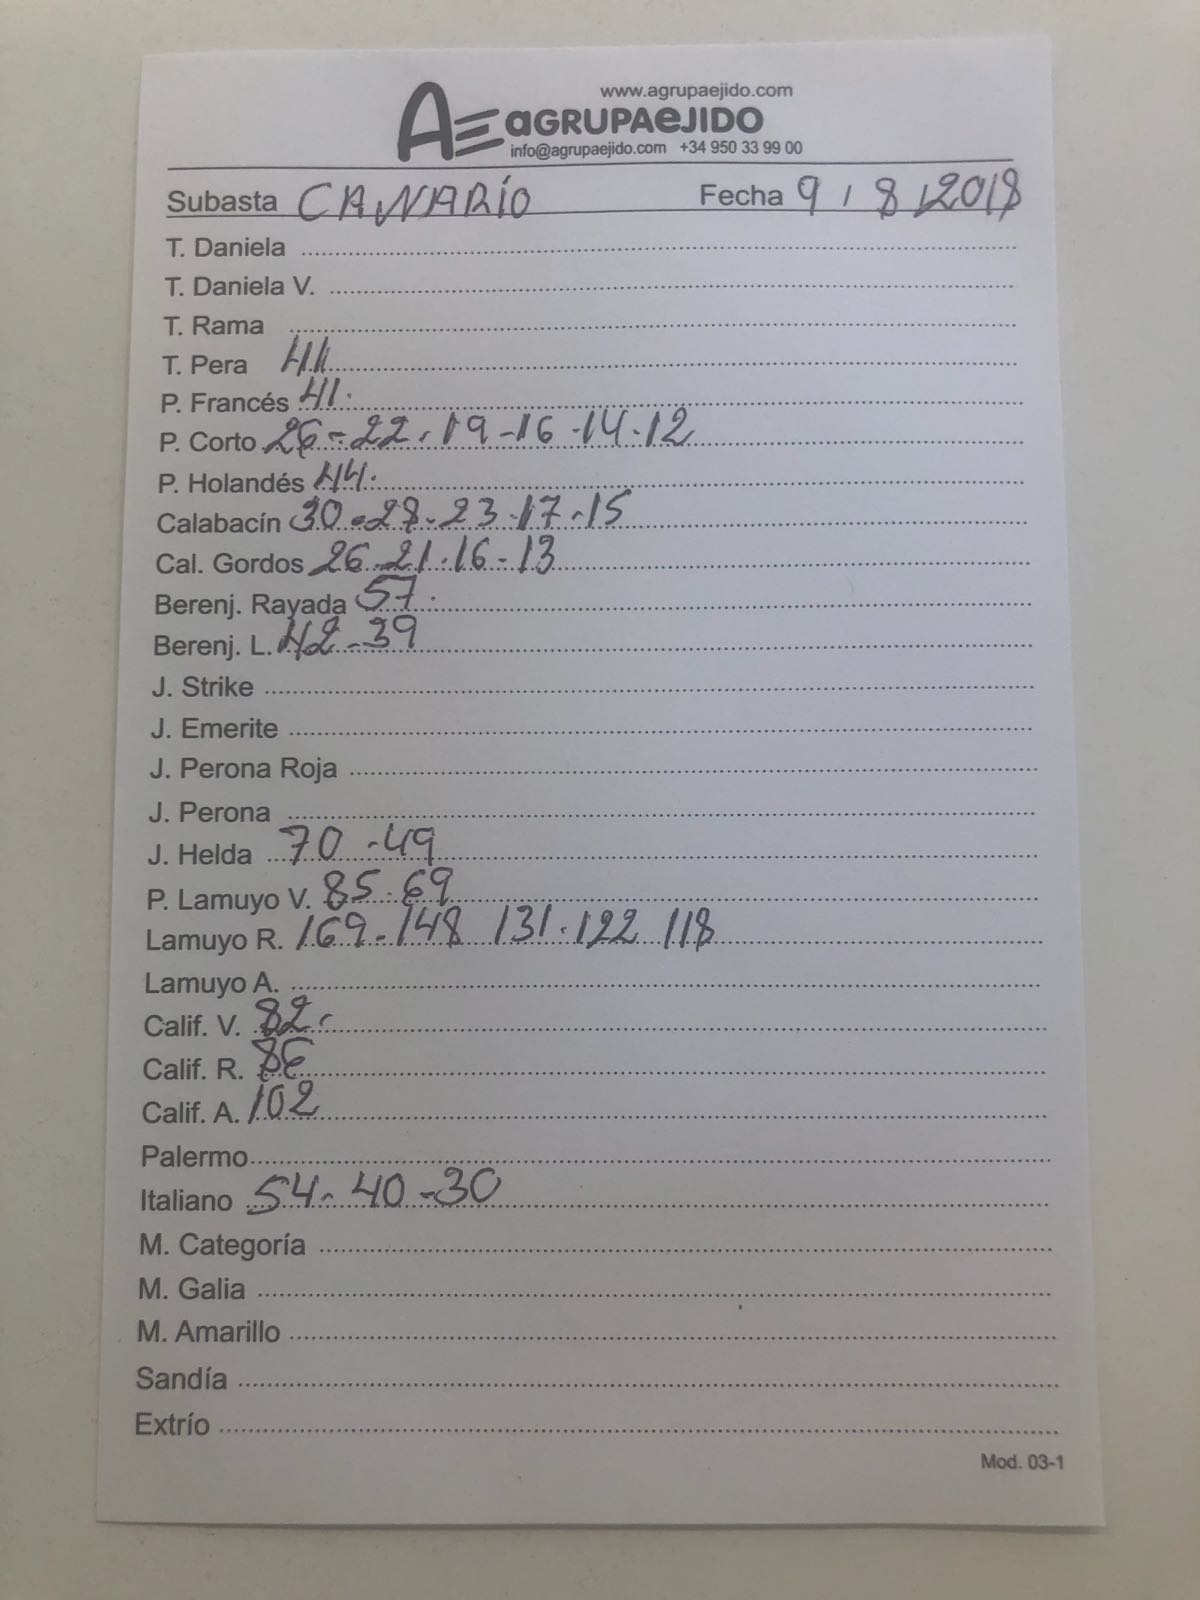 www.agrupaejido.com
AE AGRUPAEJIDO
info@agrupaejido.com +34 950 33 99 00
Subasta CANARÍO Fecha 9 / 8 / 2018
T. Daniela
T. Daniela V.
T. Rama
T. Pera 41
P. Francés 41.
P. Corto 26-22-19-16-14-12
P. Holandés 44.
Calabacín 30-28-23-17-15
Cal. Gordos 26-21-16-13
Berenj. Rayada 57.
Berenj. L. 42-39
J. Strike
J. Emerite
J. Perona Roja
J. Perona
J. Helda 70-49
P. Lamuyo V. 85-69
Lamuyo R. 169-148 131-122 118
Lamuyo A.
Calif. V. 82-
Calif. R. 86
Calif. A. 102
Palermo
Italiano 54-40-30
M. Categoría
M. Galia
M. Amarillo
Sandía
Extrío
Mod. 03-1